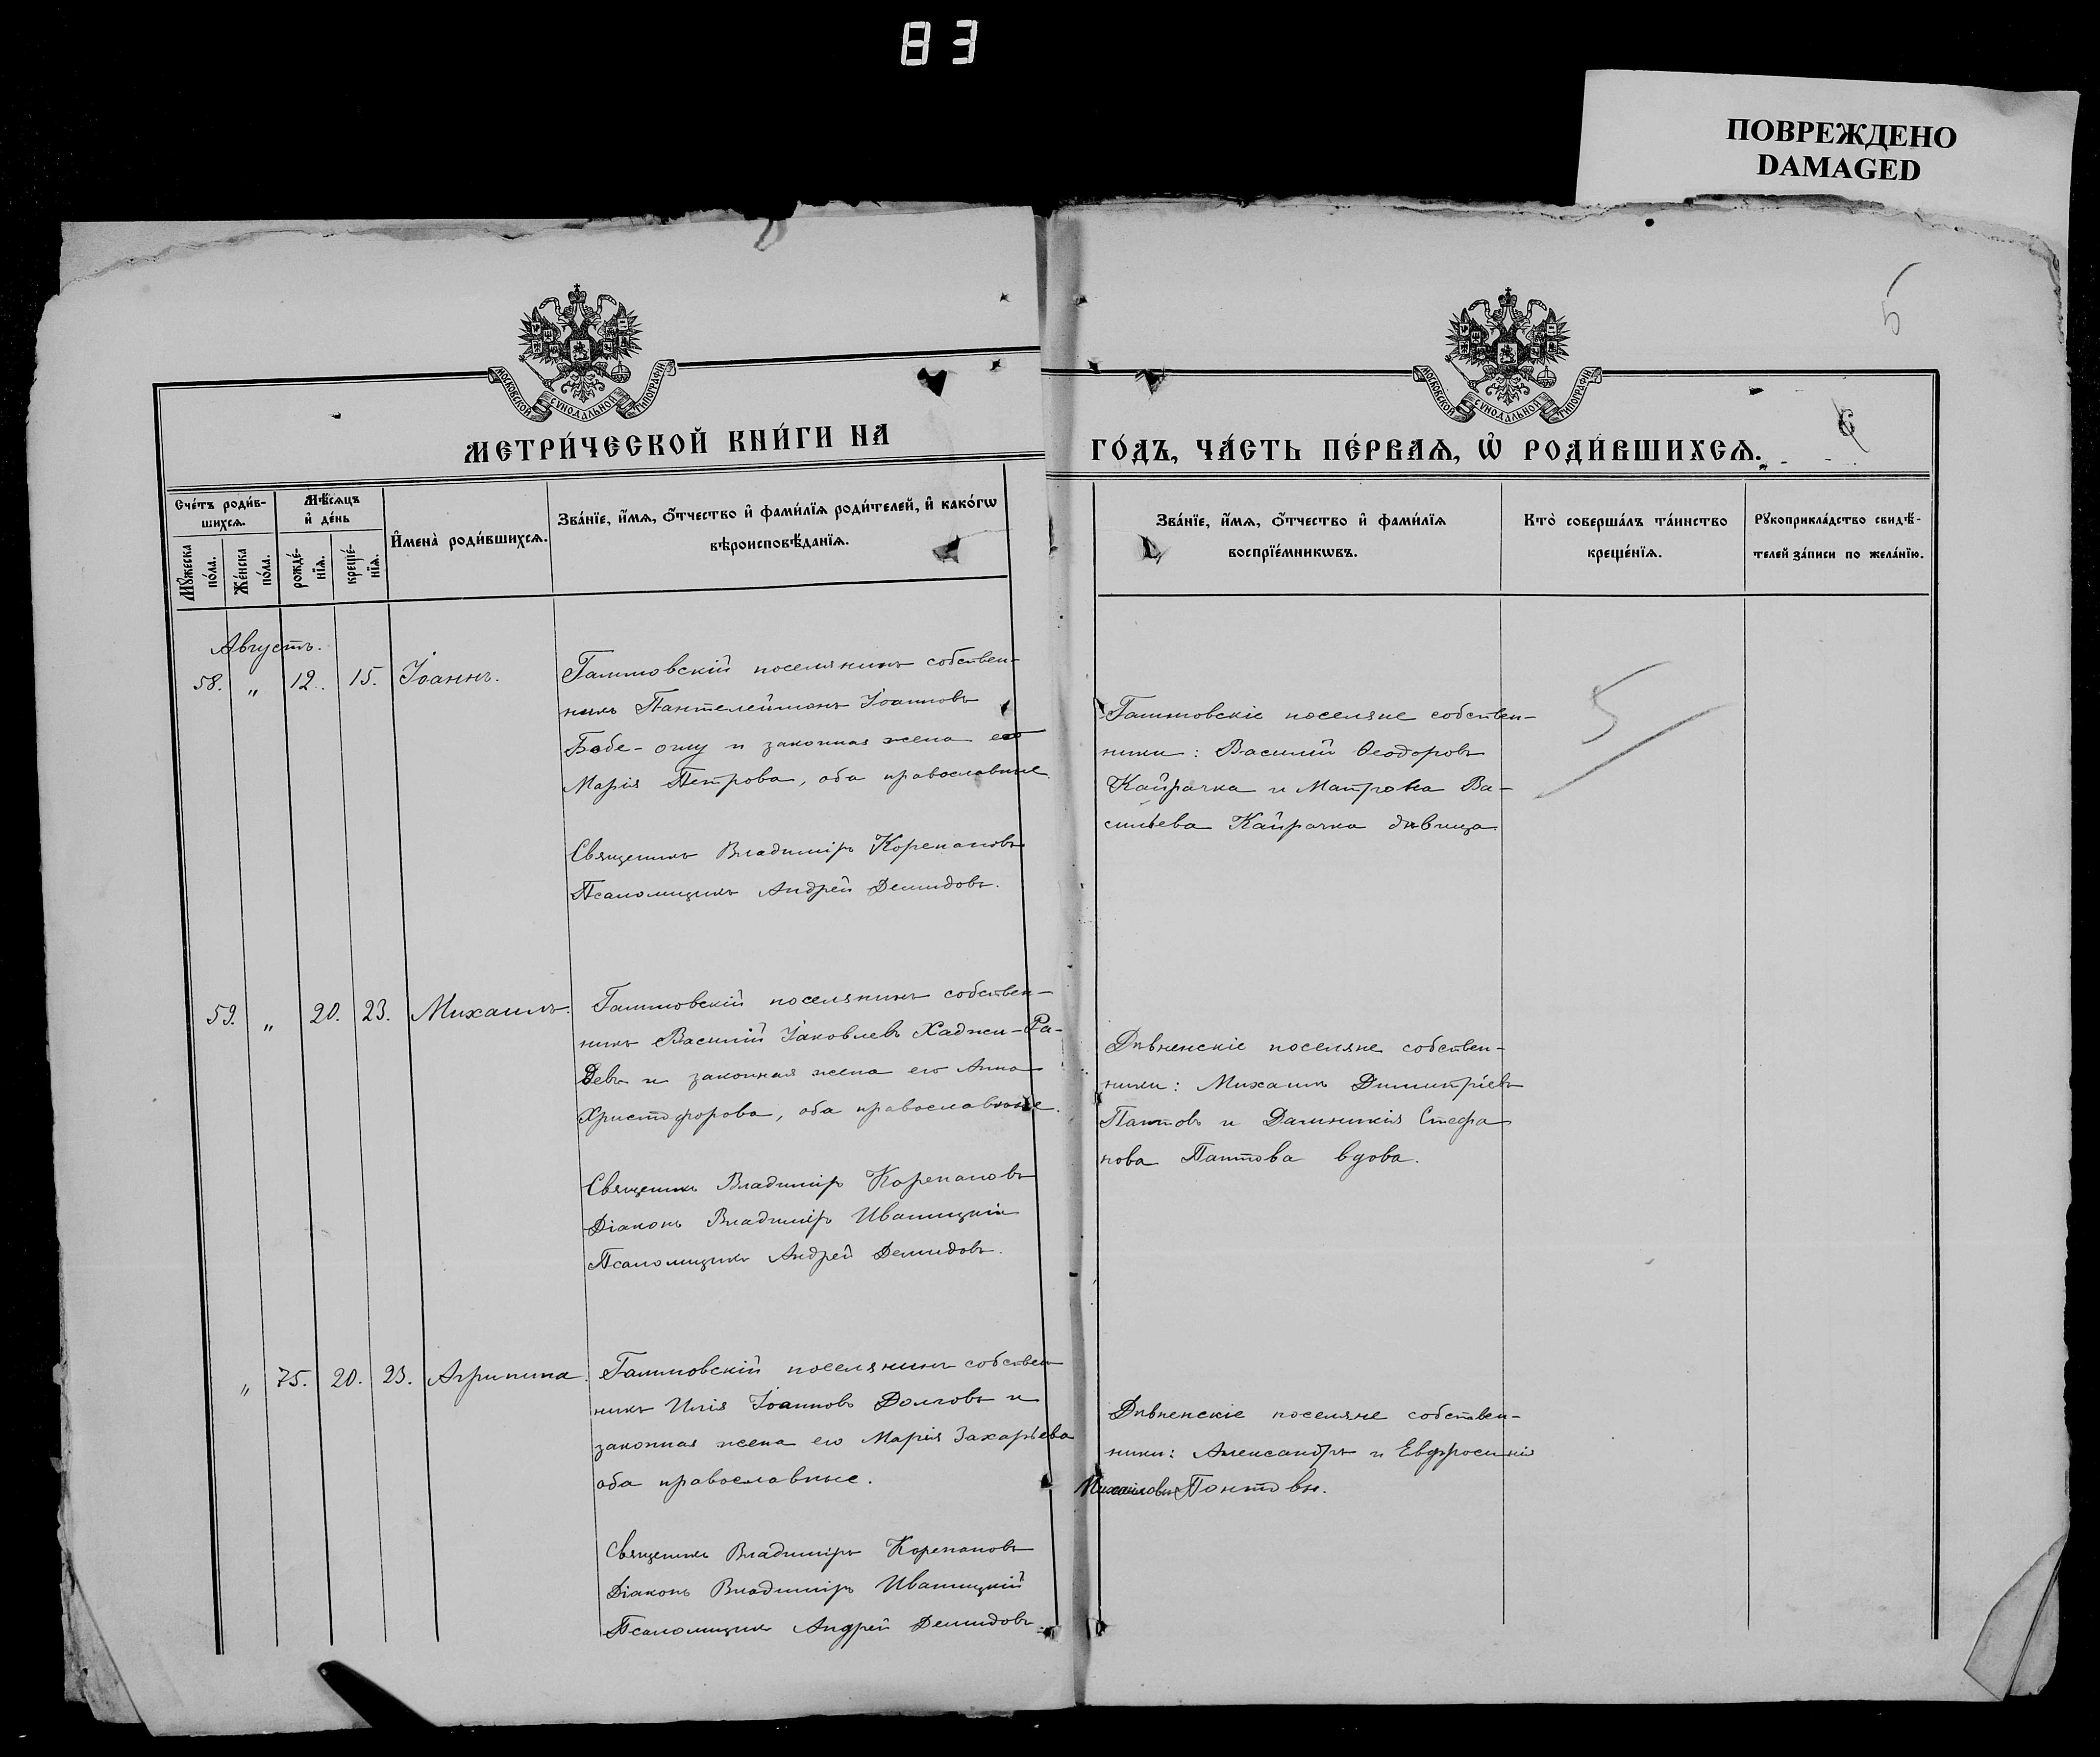 83
ПОВРЕЖДЕНО
DAMAGED
5
6
МОСКОВСКОЙ СУНОДАЛЬНОЙ ТИПОГРАФІИ
МОСКОВСКОЙ СУНОДАЛЬНОЙ ТИПОГРАФІИ
МЕТРИ́ЧЕСКОЙ КНИ́ГИ НА
ГО́ДЪ, ЧА́СТЬ ПЕ́РВАѦ, Ѡ҆ РОДИ́ВШИХСѦ.
Сче́тъ роди́в-
шихсѧ.
Мꙋ́жеска
по́ла.
Же́нска
по́ла.
Мѣ́сѧцъ
и҆ де́нь
рожде́-
нїѧ.
креще́-
нїѧ.
И҆мена̀ роди́вшихсѧ.
Зва́нїе, и҆́мѧ, ѻ҆́тчество и҆ фами́лїѧ роди́телей, и҆ како́гѡ
вѣроисповѣ́данїѧ.
Зва́нїе, и҆́мѧ, ѻ҆́тчество и҆ фами́лїѧ
воспрїе́мникѡвъ.
Кто̀ соверша́лъ та́инство
креще́нїѧ.
Рꙋкоприкла́дство свидѣ́-
телей за́писи по жела́нїю.
Августъ.
58. " 12. 15. Іоаннъ.
поселянинъ собствен-
никъ Пантелеймонъ Іоанновъ
Бабе-оглу и законная жена его
Марія Петрова, оба православные.
Священникъ Владиміръ Корепановъ
Псаломщикъ Андрей Демидовъ.
поселяне собствен-
ники: Василій Ѳеодоровъ
Кайрачка и Матрона Ва-
сильева Кайрачка дѣвица
5
59. " 20. 23. Михаилъ.
поселянинъ собствен-
никъ Василій Іаковлевъ Хаджи-Ра-
девъ и законная жена его Анна
Христофорова, оба православные.
Священникъ Владиміръ Корепановъ
Діаконъ Владиміръ Иваницкій
Псаломщикъ Андрей Демидовъ.
Дѣвненскіе поселяне собствен-
ники: Михаилъ Димитріевъ
Пантовъ и Домникія Стефа
нова Пантова вдова.
" 75. 20. 23. Агрипина.
поселянинъ собствен
никъ Илія Іоанновъ Долговъ и
законная жена его Марія Захарьева
оба православные.
Священникъ Владиміръ Корепановъ
Діаконъ Владиміръ Иваницкій
Псаломщикъ Андрей Демидовъ.
Дѣвненскіе поселяне собствен-
ники: Александръ и Евфросинія
Михаиловы Пантовы.